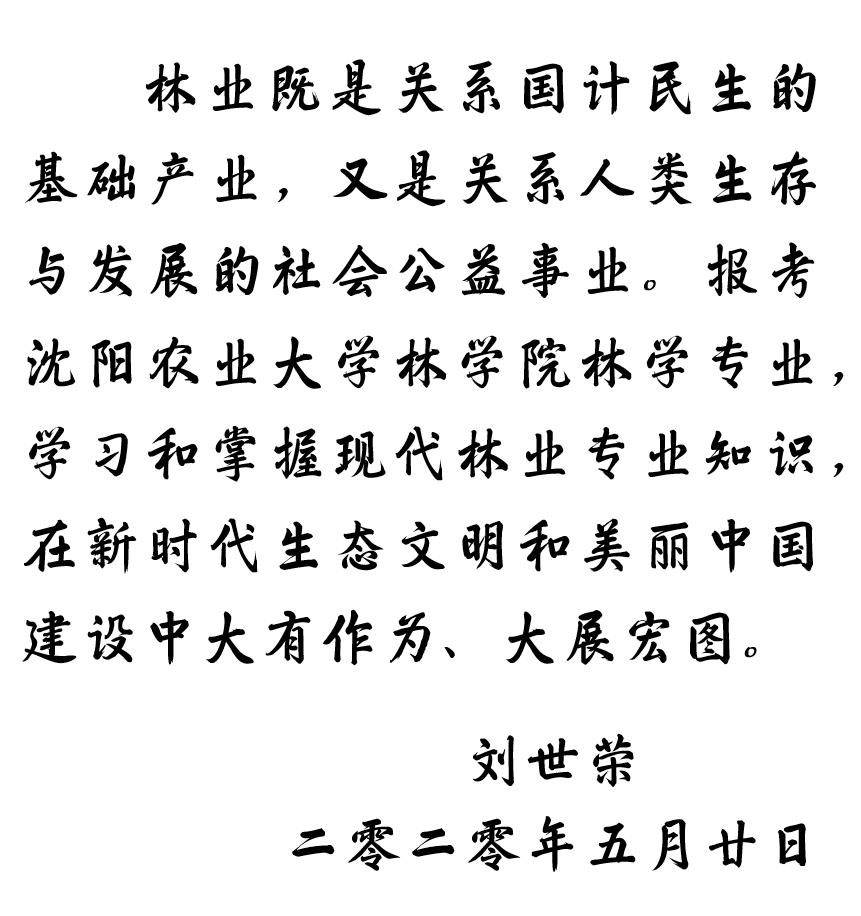 林业既是关系国计民生的
基础产业，又是关系人类生存
与发展的社会公益事业。报考
沈阳农业大学林学院林学专业，
学习和掌握现代林业专业知识，
在新时代生态文明和美丽中国
建设中大有作为、大展宏图。
刘世荣
二零二零年五月廿日